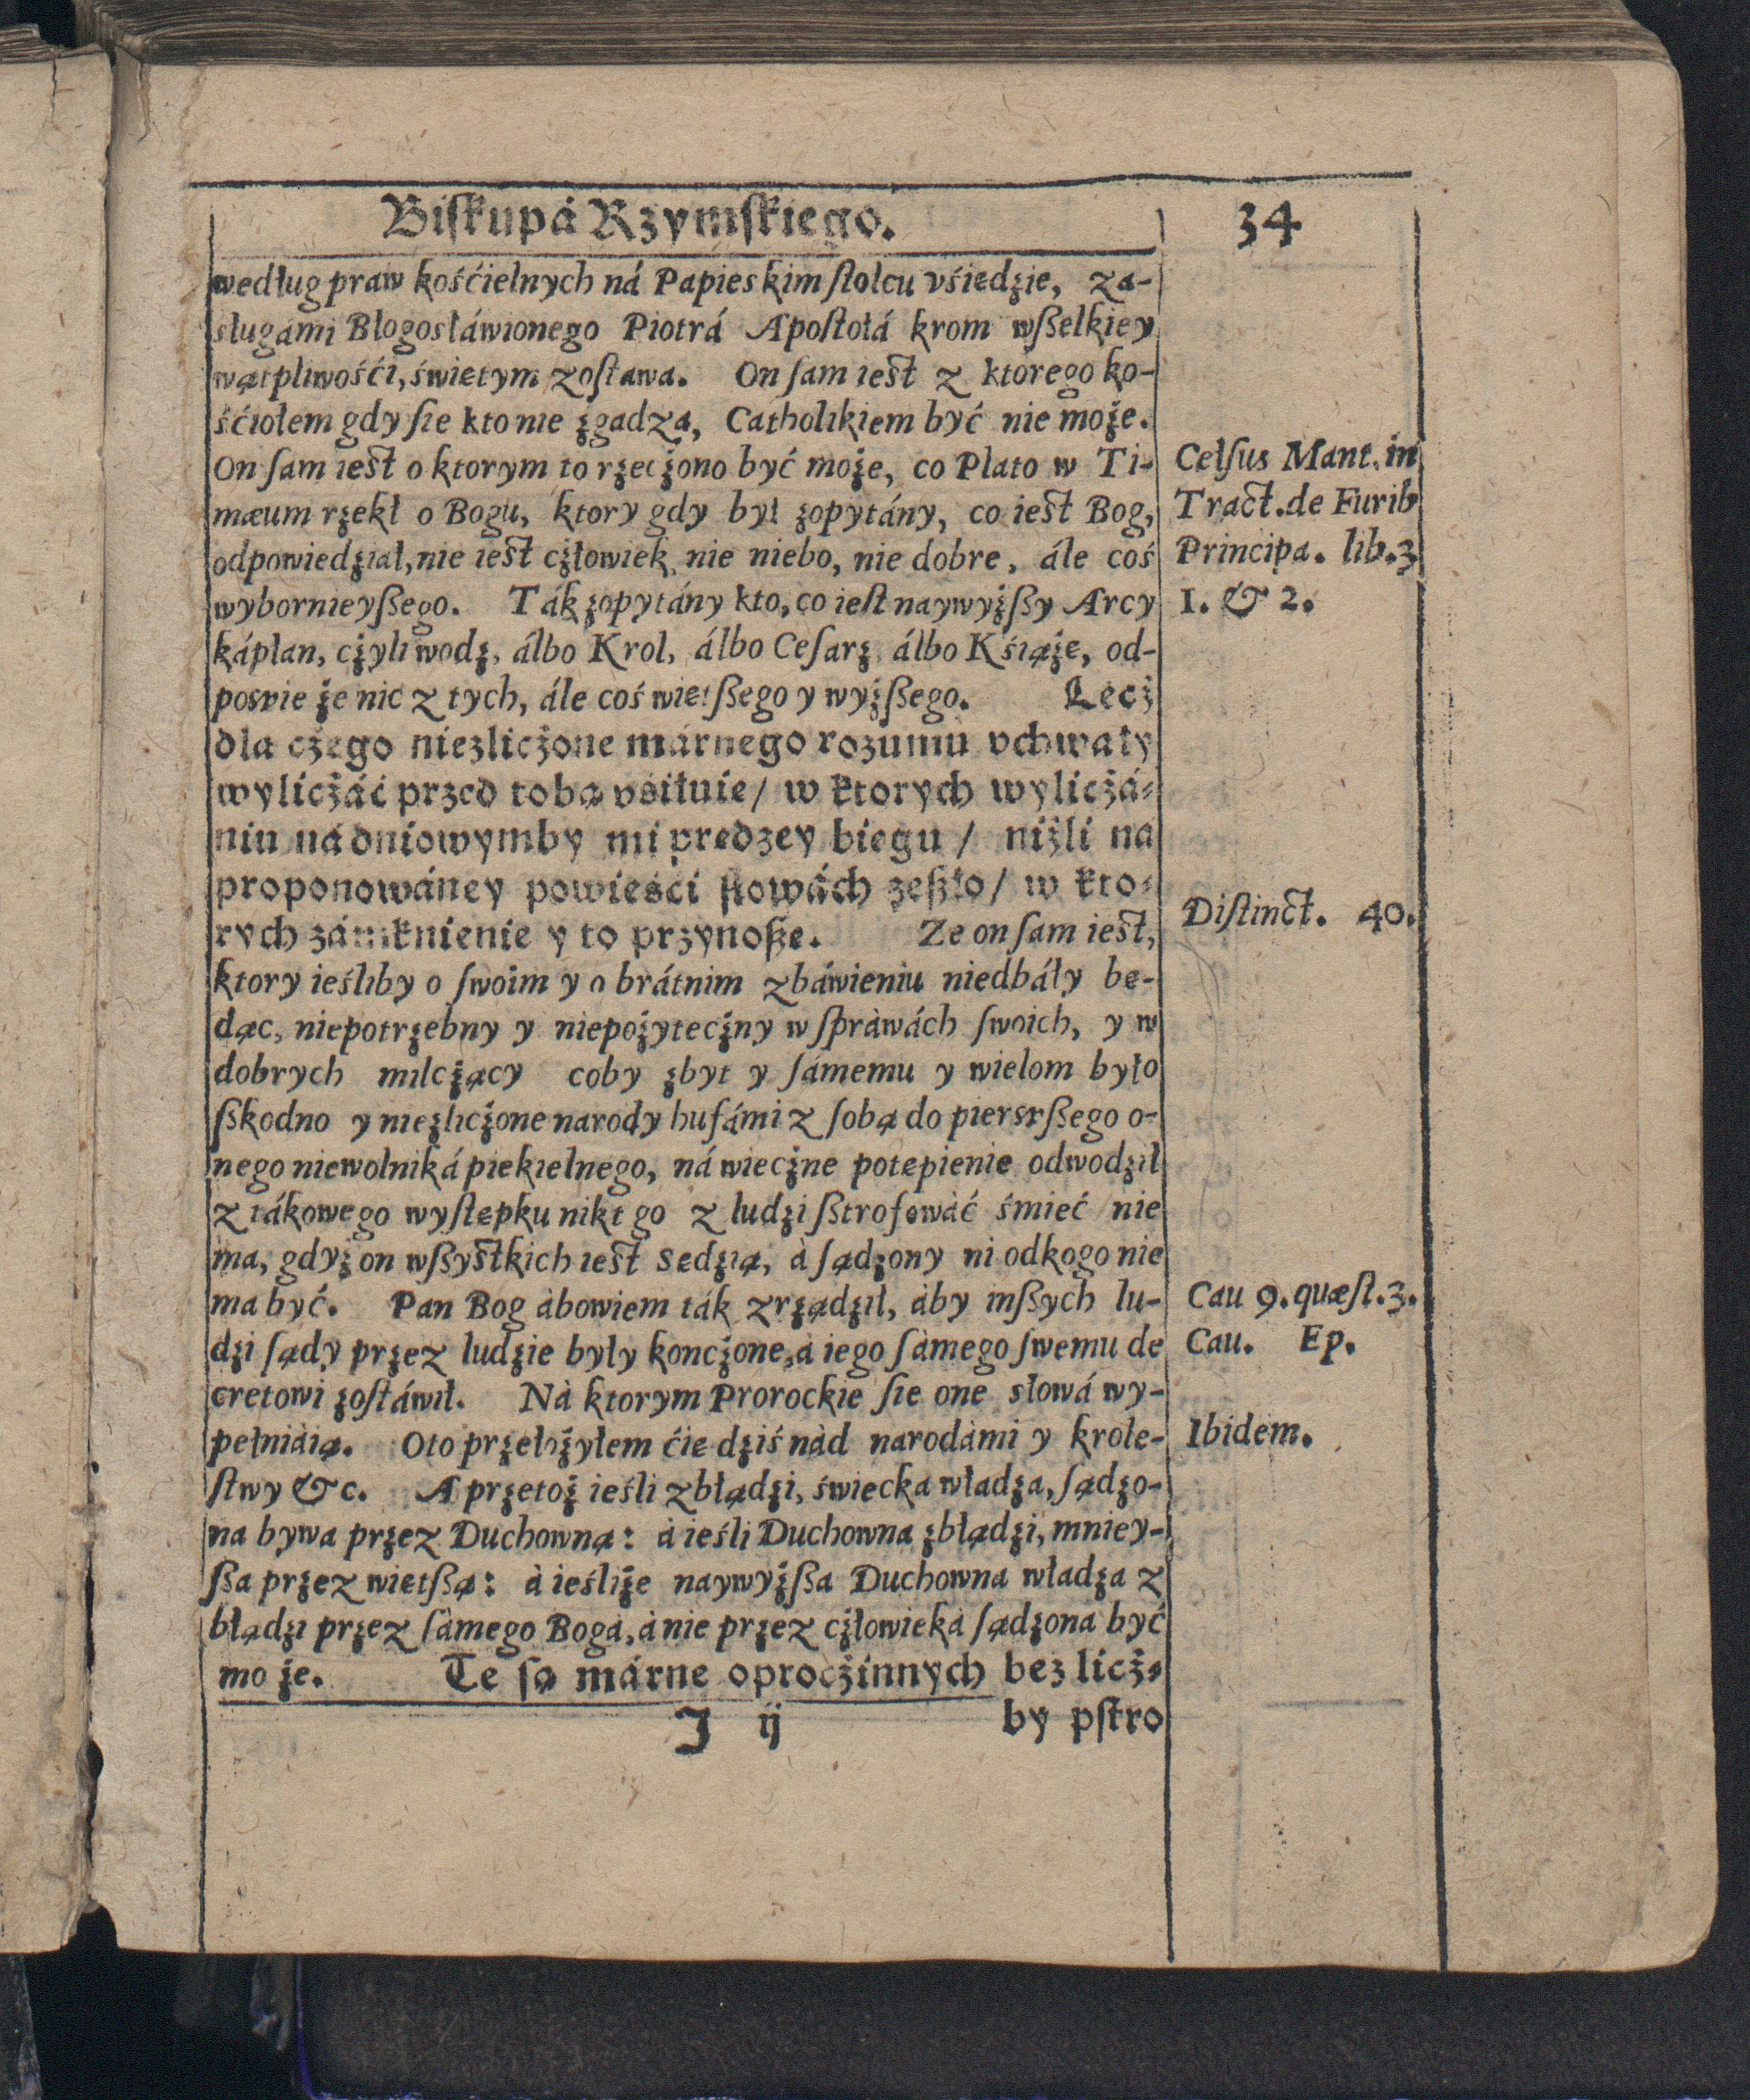 Biſkupá Rzymſkiego.
34
według praw kośćielnych ná Papieskim ſtolcu vśiedżie, za-
ſługámi Błogosłáwionego Piotrá Apoſtołá krom wſzelkiey
wątpliwośći, świetym zoſtawa. On ſam ieſt z ktorego ko-
śćiołem gdy ſie kto nie zgadza, Catholikiem być nie może.
On ſam ieſt o ktorym to rzecżono być może, co Plato w Ti-
mæum rzekł o Bogu, ktory gdy był zopytány, co ieſt Bog,
odpowiedział, nie ieſt cżłowiek, nie niebo, nie dobre, ále coś
wybornieyſzego. Ták zopytány kto, co ieſt naywyżſzy Arcy
kápłan, cżyli wodz, álbo Krol, álbo Ceſarz álbo Kśiąże, od-
powie że nic z tych, ále coś wietſzego y wyżſzego. Lecż
dla cżego niezlicżone márnego rozumu vchwały
wylicżáć przed tobą vsiłuie/ w ktorych wylicżá-
niu ná dniowymby mi predzey biegu/ niżli na
proponowáney powieści słowách zeſzło/ w kto-
rych zámknienie y to przynoſze. Ze on ſam ieſt,
ktory ieśliby o ſwoim y o brátnim zbáwieniu niedbáły be-
dąc, niepotrzebny y niepożytecżny w ſpràwách ſwoich, y w
dobrych milcżący coby zbyt y ſámemu y wielom było
ſzkodno y niezlicżone narody hufámi z ſobą do pierwſzego o-
nego niewolniká piekielnego, ná wiecżne potepienie odwodził
z tákowego wyſtepku nikt go z ludzi ſztrofowàć śmieć nie
ma, gdyż on wſzyſtkich ieſt sedzią, à ſądzony ni odkogo nie
ma być. Pan Bog àbowiem ták zrządził, àby inſzych lu-
dzi ſądy przez ludzie były koncżone, à iego ſàmego ſwemu de
cretowi zoſtáwił. Nà ktorym Prorockie ſie one słowá wy-
pełniàią. Oto przełożyłem ćie dziś nàd narodàmi y krole-
ſtwy &c. A przetoż ieśli zbłądzi, świecka władza, ſądzo-
na bywa przez Duchowną: à ieśli Duchowna zbłądzi, mniey-
ſza przez wietſzą: à ieśliże naywyżſza Duchowna władza z
błądzi przez ſàmego Bogà, à nie przez cżłowiekà ſądzona być
może. Te ſą márne oprocżinnych bez licż-
J ij
by pſtro
Celſus Mant. in
Tract. de Furib
Principa. lib. 3
1. & 2.
Diſtinct. 40.
Cau 9. quæſt. 3.
Cau. Ep.
Ibidem.